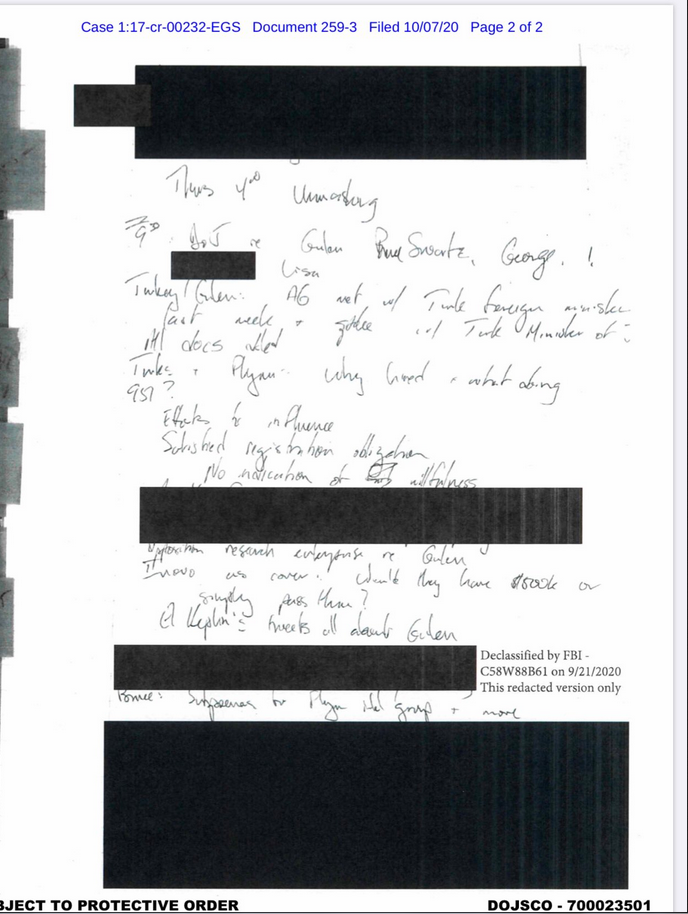 Case 1:17-cr-00232-EGS Document 259-3 Filed 10/07/20 Page 2 of 2
Thurs 4:00 Unmasking
9:30 DoJ re Gulen Bruce Swartz, George,
Lisa
Turkey/Gulen: AG met w/ Turk foreign minister
last week + w/ Turk Minister of
All docs
Turks + Flynn: why hired + what doing
951?
Efforts to influence
Satisfied registration obligation
No indication of willfulness
research enterprise re Gulen
Inovo as cover? Would they have $500k or
simply pass thru?
tweets all about Gulen
Declassified by FBI -
C58W88B61 on 9/21/2020
This redacted version only
Bruce: Subpoenas for Flynn Intel group + more
BJECT TO PROTECTIVE ORDER
DOJSCO - 700023501